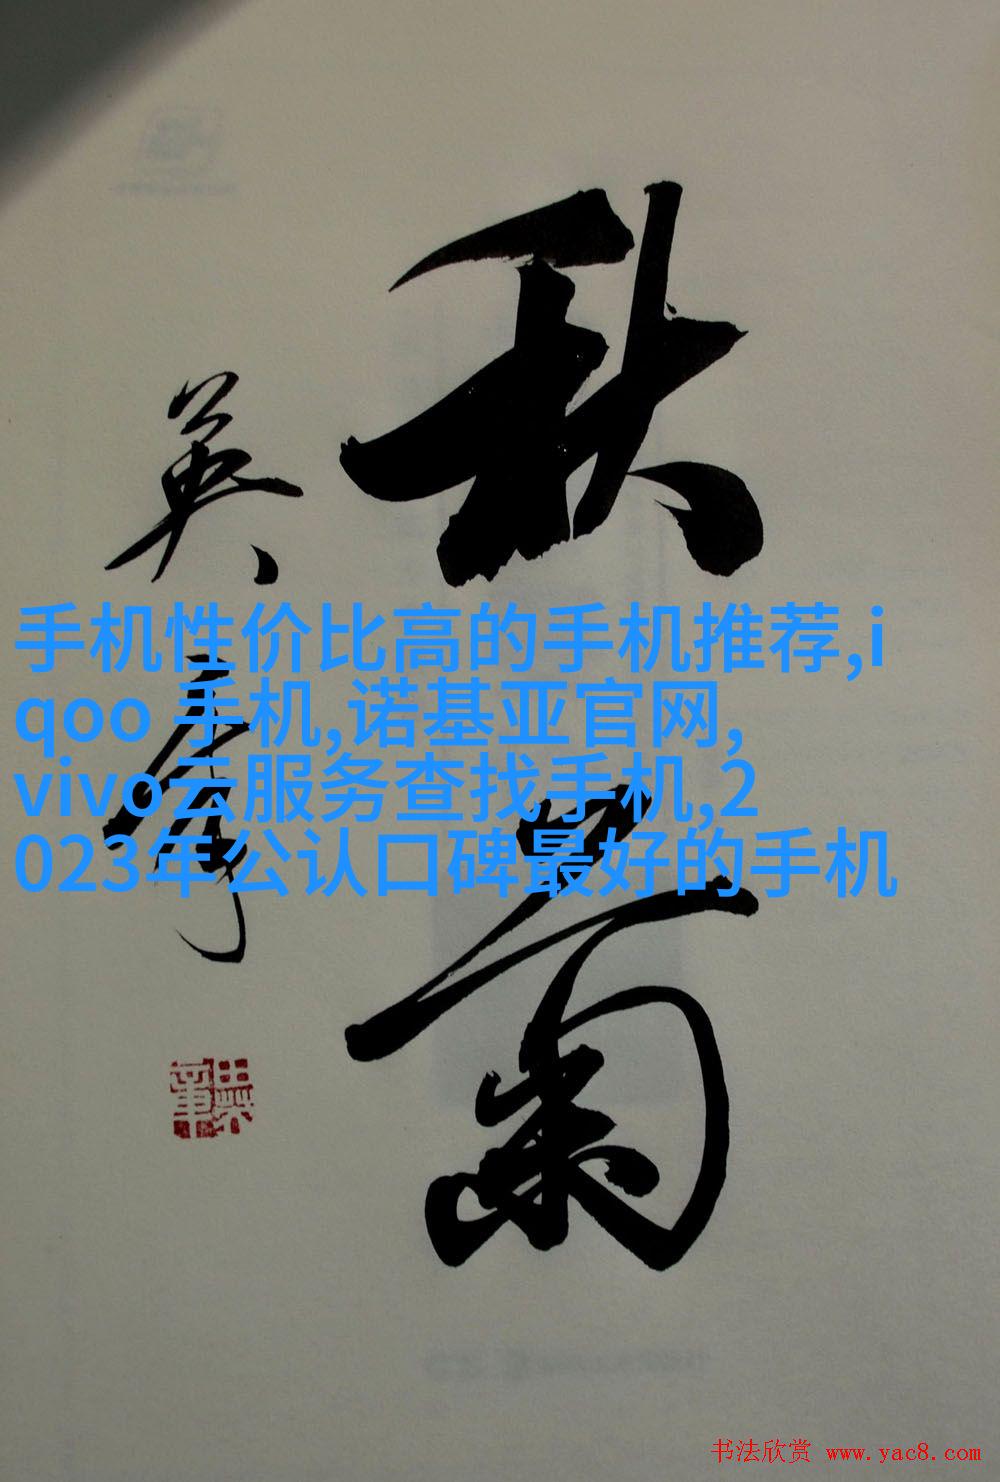 秋菊
英章
手机性价比高的手机推荐,i
qoo 手机,诺基亚官网,
vivo云服务查找手机,2
023年公认口碑最好的手机
书法欣赏 www.yac8.com